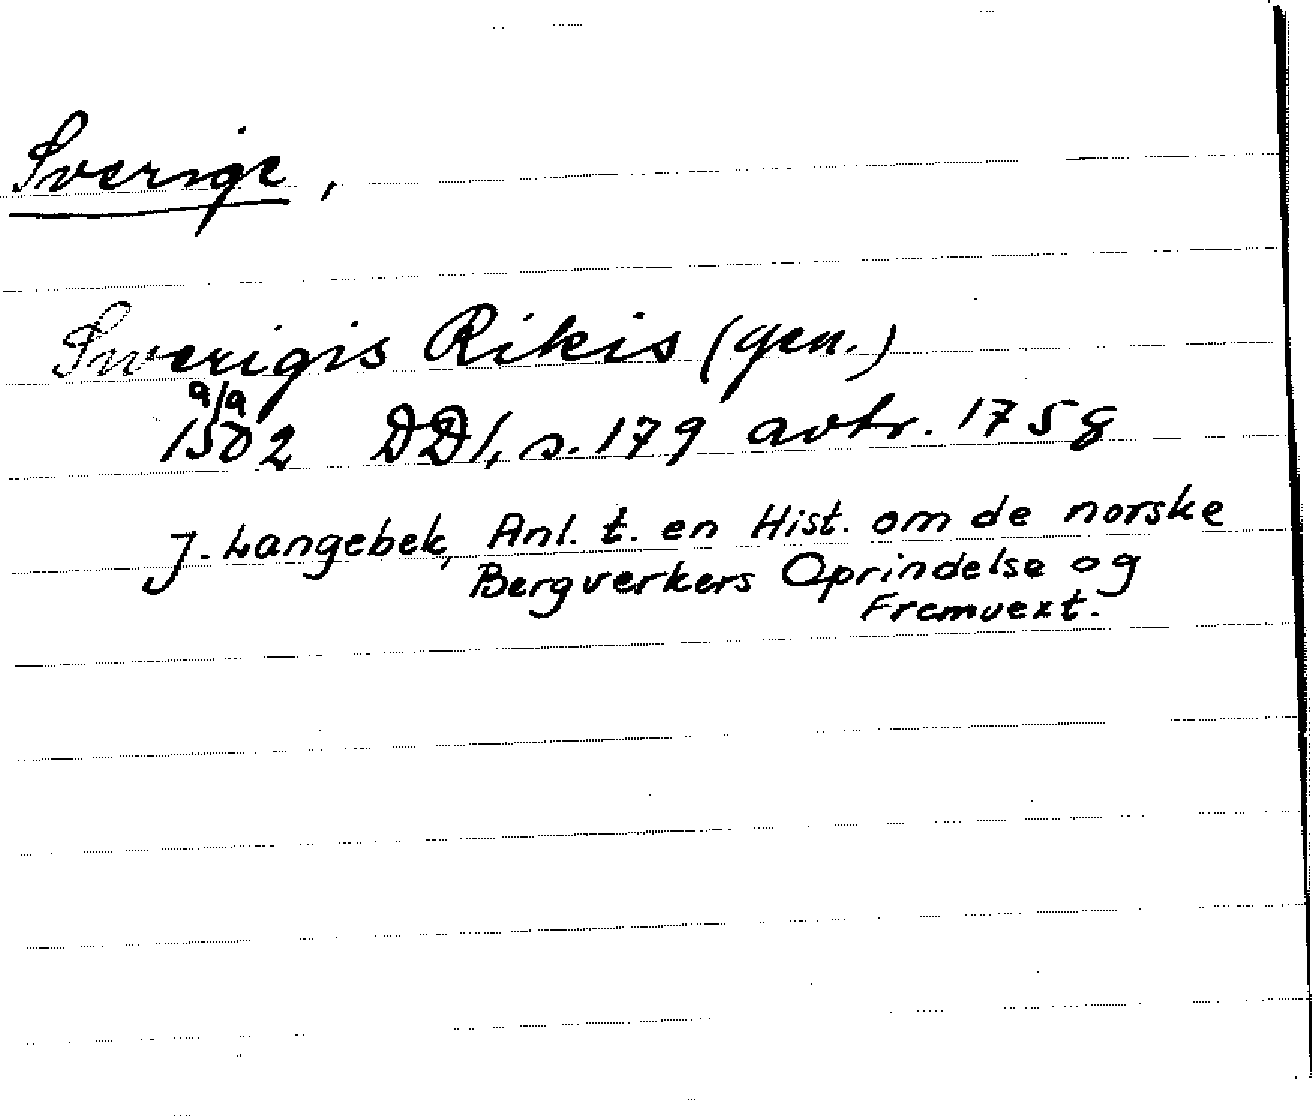 Sverige,
Swerigis Rikis (gen.)
9/9
1502 DD1, s. 179 avtr. 1758
J. Langebek, Anl. t. en Hist. om de norske
Bergverkers Oprindelse og
Fremvext.